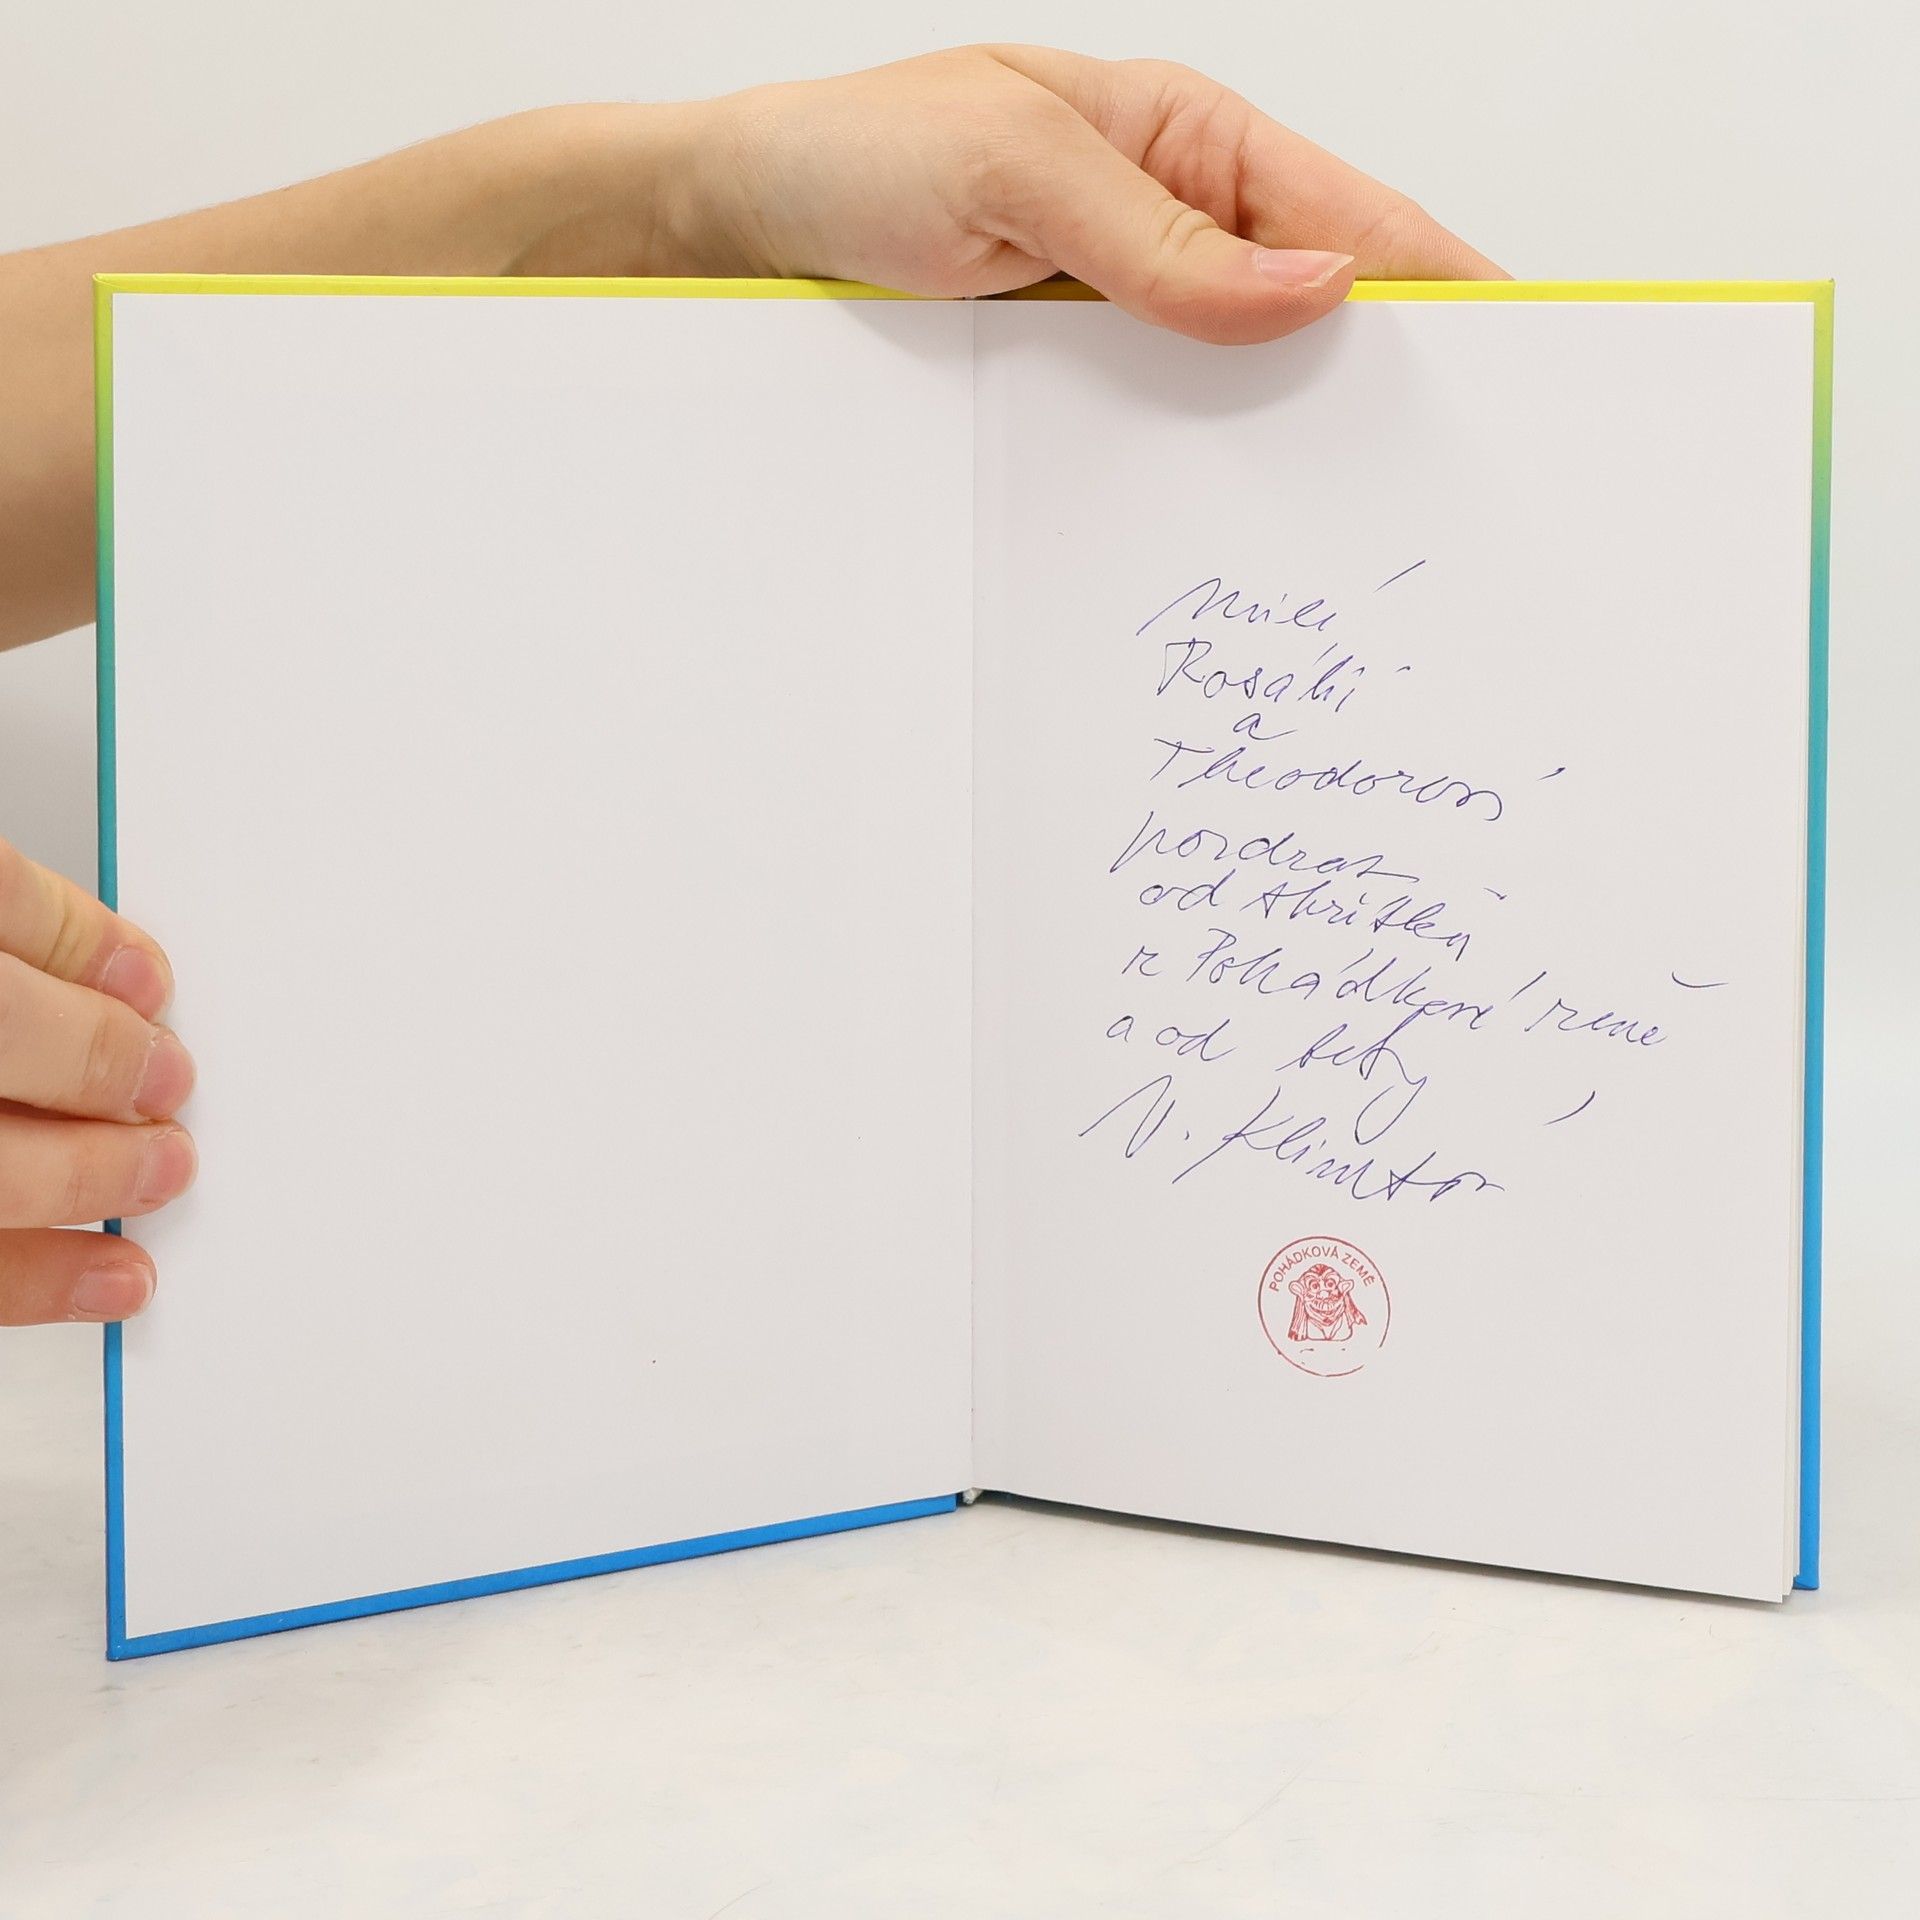 Milé
Rosálii
a
Theodorovi
pozdrav
od skřítků
z Pohádkové země
a od tety
V. Klimtová
POHÁDKOVÁ ZEMĚ